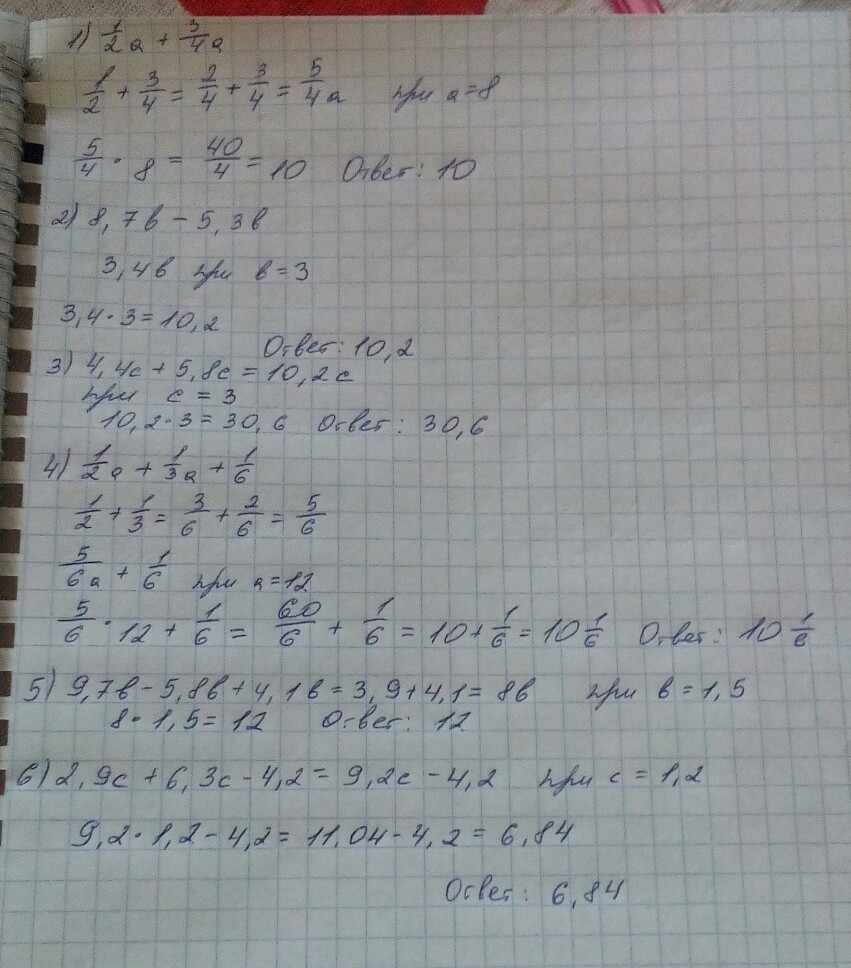 1) 1/2 a + 3/4 a
1/2 + 3/4 = 2/4 + 3/4 = 5/4 a при a = 8
5/4 · 8 = 40/4 = 10 Ответ: 10
2) 8,7в - 5,3в
3,4в при в = 3
3,4 · 3 = 10,2
Ответ: 10,2
3) 4,4с + 5,8с = 10,2с
при с = 3
10,2 · 3 = 30,6 Ответ: 30,6
4) 1/2 a + 1/3 a + 1/6
1/2 + 1/3 = 3/6 + 2/6 = 5/6
5/6 a + 1/6 при a = 12
5/6 · 12 + 1/6 = 60/6 + 1/6 = 10 + 1/6 = 10 1/6 Ответ: 10 1/6
5) 9,7в - 5,8в + 4,1в = 3,9 + 4,1 = 8в при в = 1,5
8 · 1,5 = 12 Ответ: 12
6) 2,9с + 6,3с - 4,2 = 9,2с - 4,2 при с = 1,2
9,2 · 1,2 - 4,2 = 11,04 - 4,2 = 6,84
Ответ: 6,84